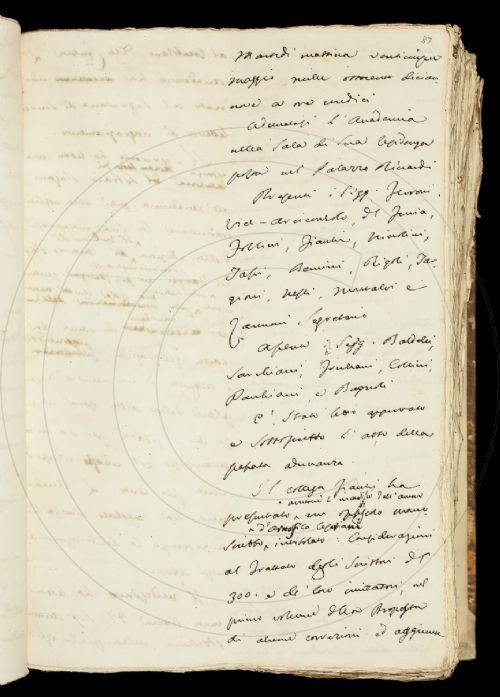 87
Martedì mattina venticinque
maggio mille ottocento dician
nove a ore undici
Adunatasi l'Accademia
nella Sala di Sua residenza
posta nel Palazzo Riccardi
Presenti i Sigg. Ferroni
Vice-Arciconsolo, del Furia,
Follini, Fiacchi, Niccolini,
Bencini, Rigoli, Ta-
gioni, Nesti, Montalvi e
Zannoni Segretario
Assenti i Sigg. Baldelli,
Sarchiani, Collini,
e Bagnoli
È stato letto approvato
e sottoscritto l'atto della
passata adunanza.
Il collega Fiacchi ha
presentato un opuscolo mano
scritto intitolato: Considerazioni
al Trattato degli Scrittori del
300. e de' loro imitatori, nel
primo volume della Proposta
di alcune correzioni ed aggiunte